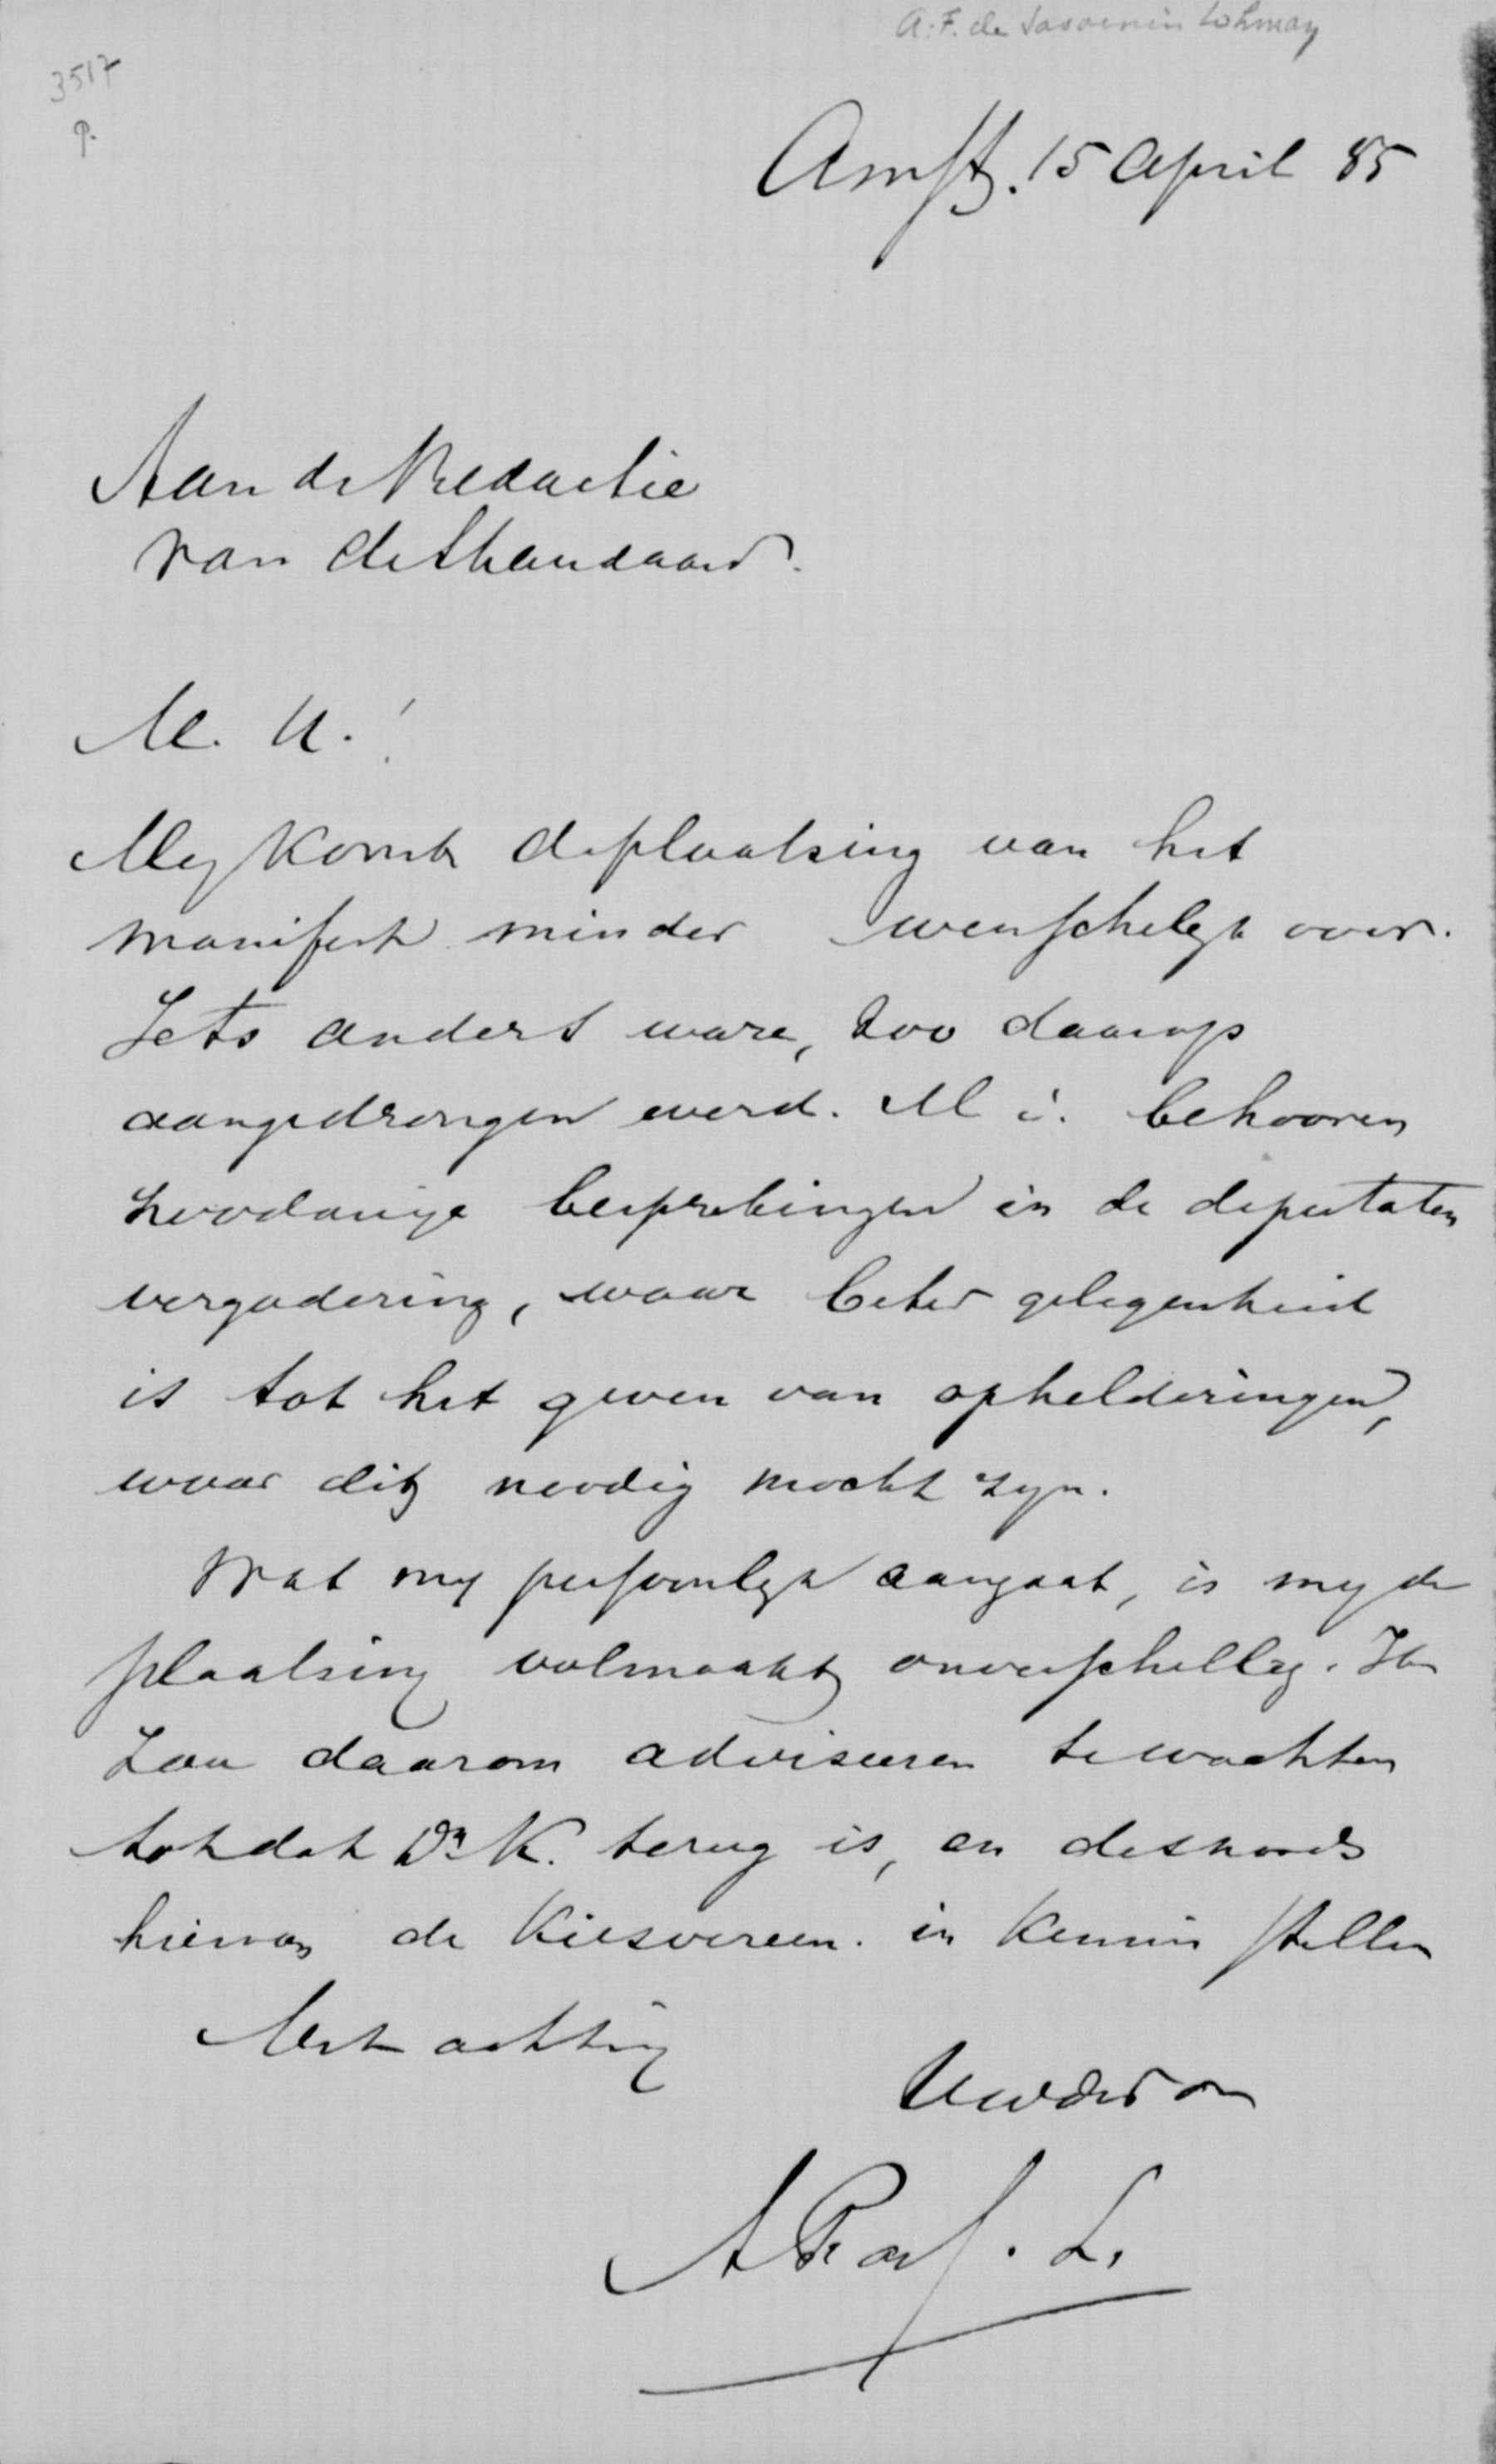 A.F. de Savornin Lohman
3517
P.
Amst. 15 April 85
Aan de Redactie
van de Standaard.
M. H.!
Mij komt de plaatsing van het
manifest minder wenschelijk voor.
Iets anders ware, zoo daarop
aangedrongen werd. M i. behooren
zoodanige besprekingen in de deputaten
vergadering, waar beter gelegenheid
is tot het geven van ophelderingen,
waar dit noodig mocht zijn.
Wat mij persoonlijk aangaat, is mij de
plaatsing volmaakt onverschillig. Ik
zou daarom adviseeren te wachten
totdat Dr K. terug is, en desnoods
hiervan de Kiesvereen. in kennis stellen
Met achting
Uwd